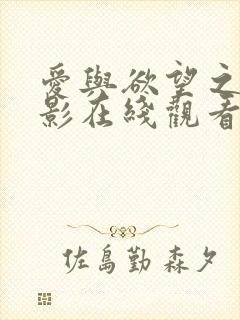 愛與欲望之
影在綫觀看
佐島勤 森夕